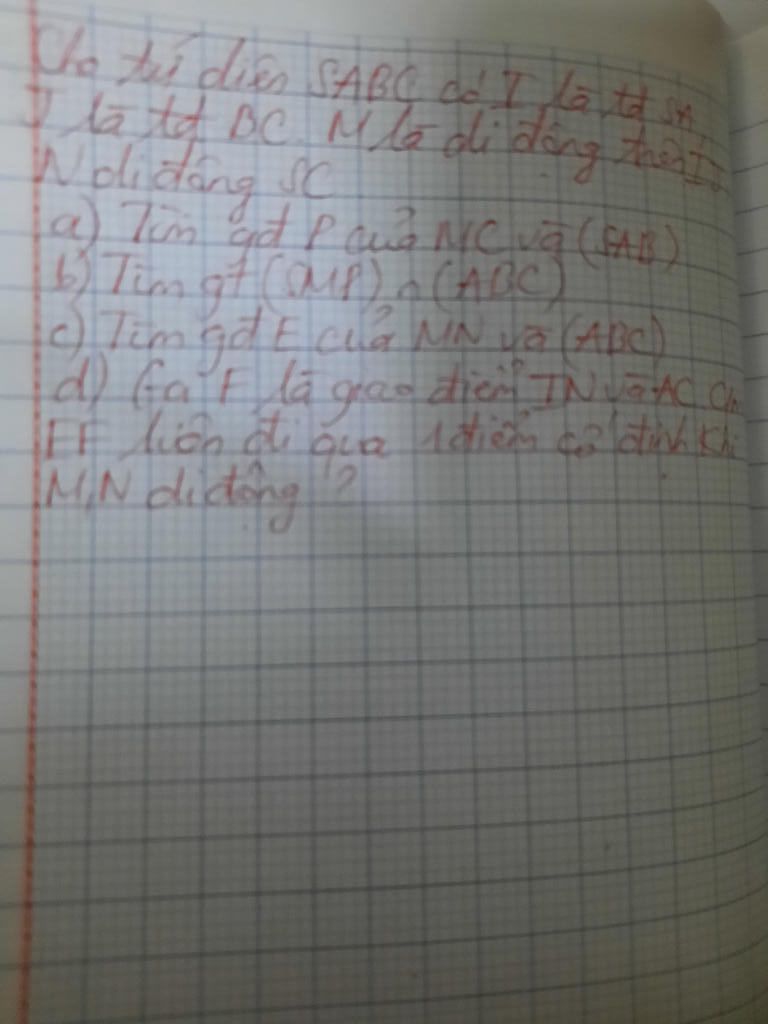 Cho tứ diện SABC có I là tđ SA,
J là tđ BC. M là di động trên IJ
N di động SC
a) Tìm gđ P của MC và (SAB)
b) Tìm gt (SMP) ∩ (ABC)
c) Tìm gđ E của MN và (ABC)
d) Gọi F là giao điểm IN và AC. Cm
EF luôn đi qua 1 điểm cố định khi
M,N di động ?